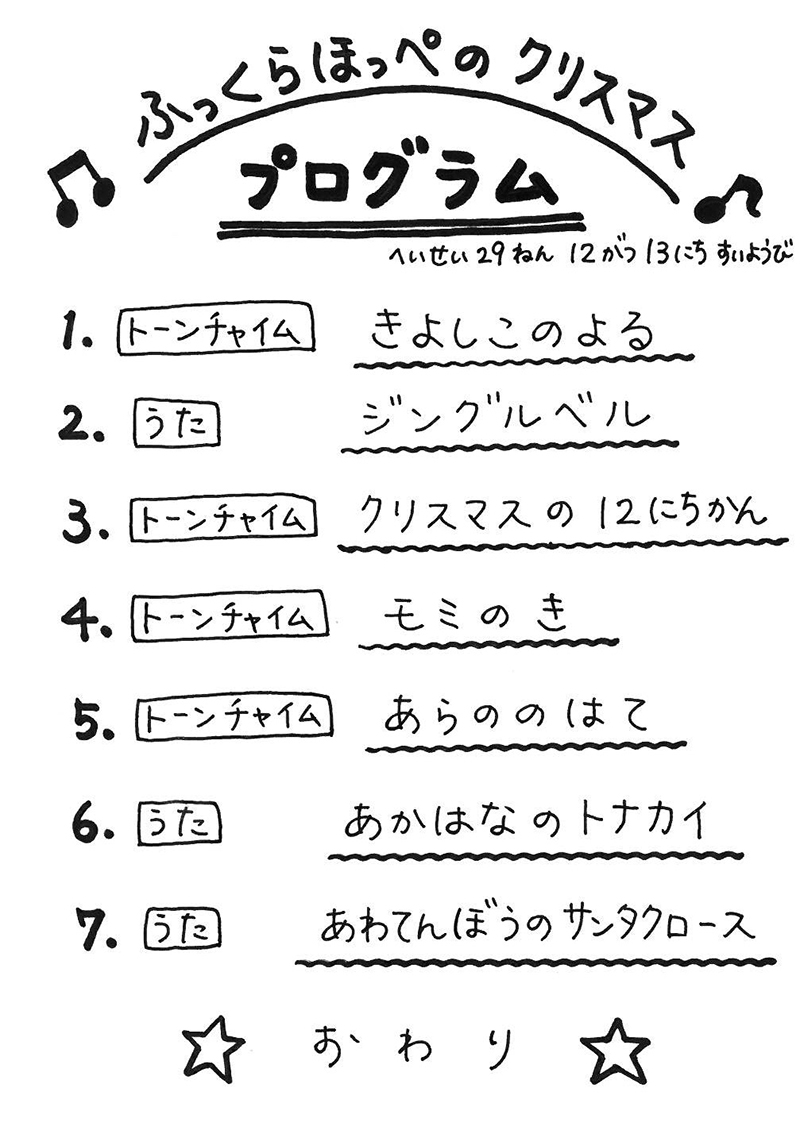 ふっくらほっぺの クリスマス
プログラム
へいせい29ねん 12がつ 13にち すいようび
1. トーンチャイム きよしこのよる
2. うた ジングルベル
3. トーンチャイム クリスマスの 12にちかん
4. トーンチャイム モミのき
5. トーンチャイム あらののはて
6. うた あかはなのトナカイ
7. うた あわてんぼうのサンタクロース
おわり